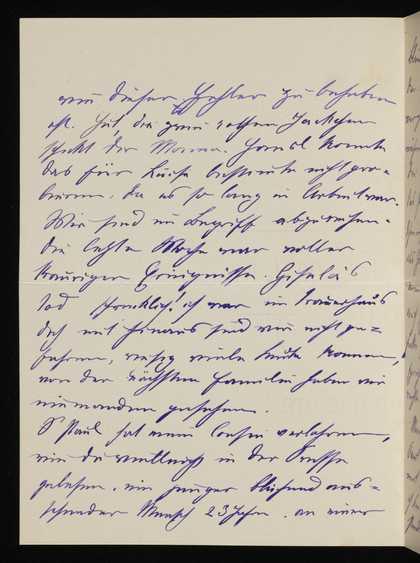 wie dieser Fehler zu beheben
ist. Hut, die zwei rothen Jäckchen
schickt der Mama. Haarsl konnte
das für Luise bestimmte nicht pro-
bieren, da es so lang in Arbeit war.
Wir sind im Begriff abzureisen.
Die letzte Woche war voller
trauriger Ereignisse. Gisela's
Tod schrecklich! ich war im Trauerhaus
doch mit hinaus sind wir nicht ge-
fahren, riesig viele Leute kamen,
von der nächsten Familie haben wir
niemanden gesehen.
Paul hat mein Cousin verloren,
wie du vielleicht in der Presse
gelesen, ein junger blühend aus-
sehender Mensch 23 Jahre, an einer